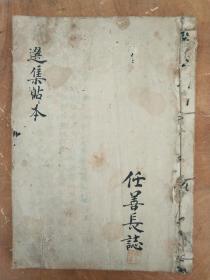 選集帖本
任善長誌